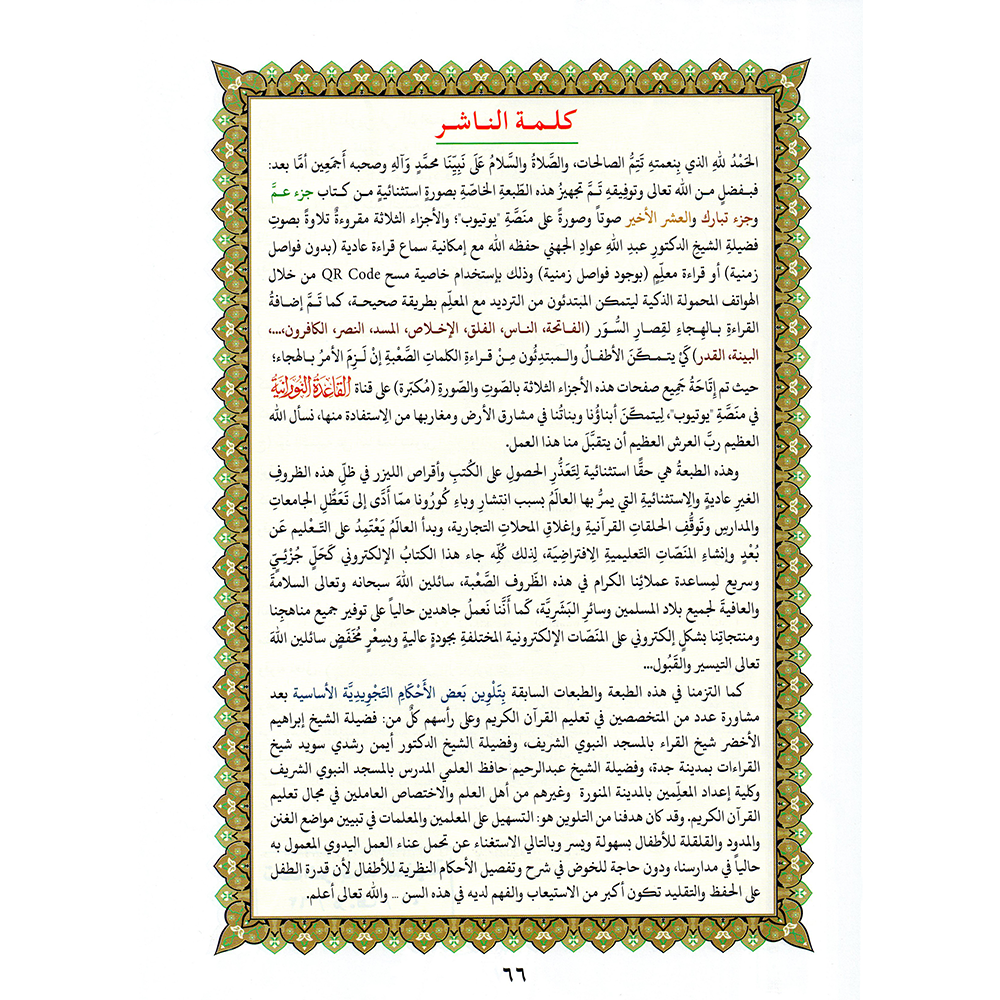 كلمة الناشر
الحَمْدُ للهِ الذي بِنعمتهِ تَتِمُّ الصالحات، والصَّلاةُ والسَّلامُ عَلَى نَبِيِّنَا محمَّدٍ وَآلهِ وصحبه أَجمَعِين أمَّا بعد:
فبفضلٍ مـن الله تعالى وتوفيقهِ تـمَّ تجهيزُ هذه الطَّبعةِ الخاصَّةِ بصورةٍ استثنائيةٍ مـن كـتاب جزء عـمَّ
وجزء تبارك والعشر الأخير صوتاً وصورةً على منَصَّةِ "يوتيوب"؛ والأجزاء الثلاثة مقروءةٌ تلاوةً بصوتِ
فضيلةِ الشيخِ الدكتورِ عبدِ اللهِ عوادِ الجهني حفظه الله مع إمكانية سماع قراءة عادية (بدون فواصل
زمنية) أو قراءة معلِّم (بوجود فواصل زمنية) وذلك بإستخدام خاصية مسح QR Code من خلال
الهواتف المحمولة الذكية ليتمكن المبتدئون من الترديد مع المعلِّم بطريقة صحيحـة، كما تـمَّ إضافـةُ
القراءةِ بـالهِـجاءِ لـقِصارِ السُّـوَر (الفـاتحَة، الناس، الفلق، الإخـلاص، المسد، النصر، الكافرون،....،
البينة، القدر) كَيْ يتمـكَّـنَ الأطفـالُ والـمبتدِئُون مِـنْ قـراءةِ الكلماتِ الصَّعْبةِ إنْ لَـزِمَ الأمرُ بالهجاء؛
حيث تم إتَاحَةُ جَمِيعِ صفحات هذه الأجزاء الثلاثة بالصَّوتِ والصَّورةِ (مُكبَّرة) على قناة القاعدة النورانية
في منَصَّةِ "يوتيوب"، لِيتمكَّنَ أبناؤُنا وبناتُنا في مشارق الأرض ومغاربها من الإستفادة منها، نسأل الله
العظيم ربَّ العرش العظيم أن يتقبَّلَ منا هذا العمل.
وهذه الطبعةُ هي حقًّا استثنائية لِتَعَذُّرِ الحصول على الكُتبِ وأقراص الليزر في ظلِّ هذه الظروف
الغيرِ عاديةٍ والإستثنائيةِ التي يمرُّ بها العالَمُ بسبب انتشارِ وباءِ كُورُونا ممّا أدَّى إلى تَعَطُّلِ الجامعاتِ
والمدارسِ وتَوقُّف الحلقاتِ القرآنيةِ وإغلاقِ المحلاتِ التجارية، وبدأ العالَمُ يَعْتَمِدُ على التَّعْليم عَن
بُعْدٍ وإنشاءِ المنَصّاتِ التعليميةِ الإفتراضِيَة، لِذلك كُلِّه جاء هذا الكتابُ الإلكتروني كَحَلٍ جُزْئِيٍ
وسريع لمِساعدة عملائِنا الكرام في هذه الظَّروف الصَّعْبة، سائلين اللهَ سبحانه وتعالى السلامةَ
والعافيةَ لجميع بلاد المسلمين وسائرِ البَشَرِيَّة، كَما أنَّنا نَعملُ جاهدين حالياً على توفير جميع مناهجِنا
ومنتجاتِنا بشكلٍ إلكتروني على المنَصّات الإلكترونية المختلفةِ بجودةٍ عاليةٍ وبسِعْرٍ مُخَفَّضٍ سائلين اللهَ
تعالى التيسير والقَبُول...
كما التزمنا في هذه الطبعة والطبعات السابقة بِتَلْوِينِ بَعضِ الأَحْكامِ التَجْوِيدِيَّة الأساسية بعد
مشاورة عدد من المتخصصين في تعليم القرآن الكريم وعلى رأسهم كلٌّ من: فضيلة الشيخ إبراهيم
الأخضر شيخ القراء بالمسجد النبوي الشريف، وفضيلة الشيخ الدكتور أيمن رشدي سويد شيخ
القراءات بمدينة جدة، وفضيلة الشيخ عبدالرحيم حافظ العلمي المدرس بالمسجد النبوي الشريف
وكلية إعداد المعلِّمين بالمدينة المنورة وغيرهم من أهل العلم والاختصاص العاملين في مجال تعليم
القرآن الكريم. وقد كان هدفنا من التلوين هو: التسهيل على المعلمين والمعلمات في تبيين مواضع الغنن
والمدود والقلقلة للأطفال بسهولة ويسر وبالتالي الاستغناء عن تحمل عناء العمل اليدوي المعمول به
حالياً في مدارسنا، ودون حاجة للخوض في شرح وتفصيل الأحكام النظرية للأطفال لأن قدرة الطفل
على الحفظ والتقليد تكون أكبر من الاستيعاب والفهم لديه في هذه السن ... والله تعالى أعلم.
٦٦